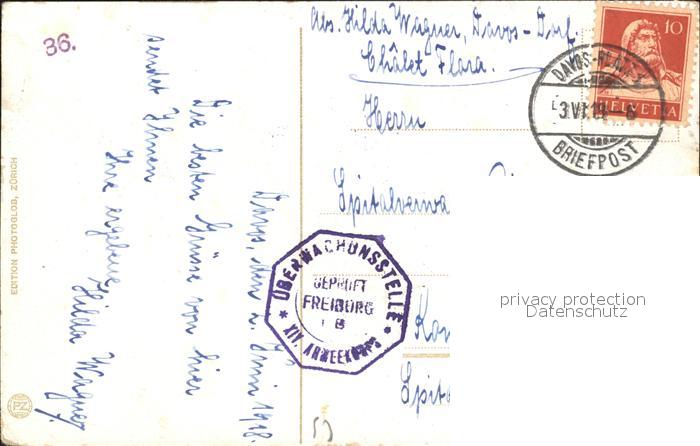 36.
Abs. Hilda Wagner, Davos-Dorf.
Châlet Flora.
10
HELVETIA
DAVOS-PLATZ
3.VI.18-6
BRIEFPOST
Herrn
Spitalverwa
Kon
Spita
ÜBERWACHUNSSTELLE
GEPRÜFT
FREIBURG
i B
XIV. ARMEEKORPS
privacy protection
Datenschutz
Davos, den 2. Juni 1918.
Die besten Grüsse von hier
sendet Ihnen
Ihre ergebene
Hilda Wagner.
EDITION PHOTOGLOB, ZÜRICH
PZ
53